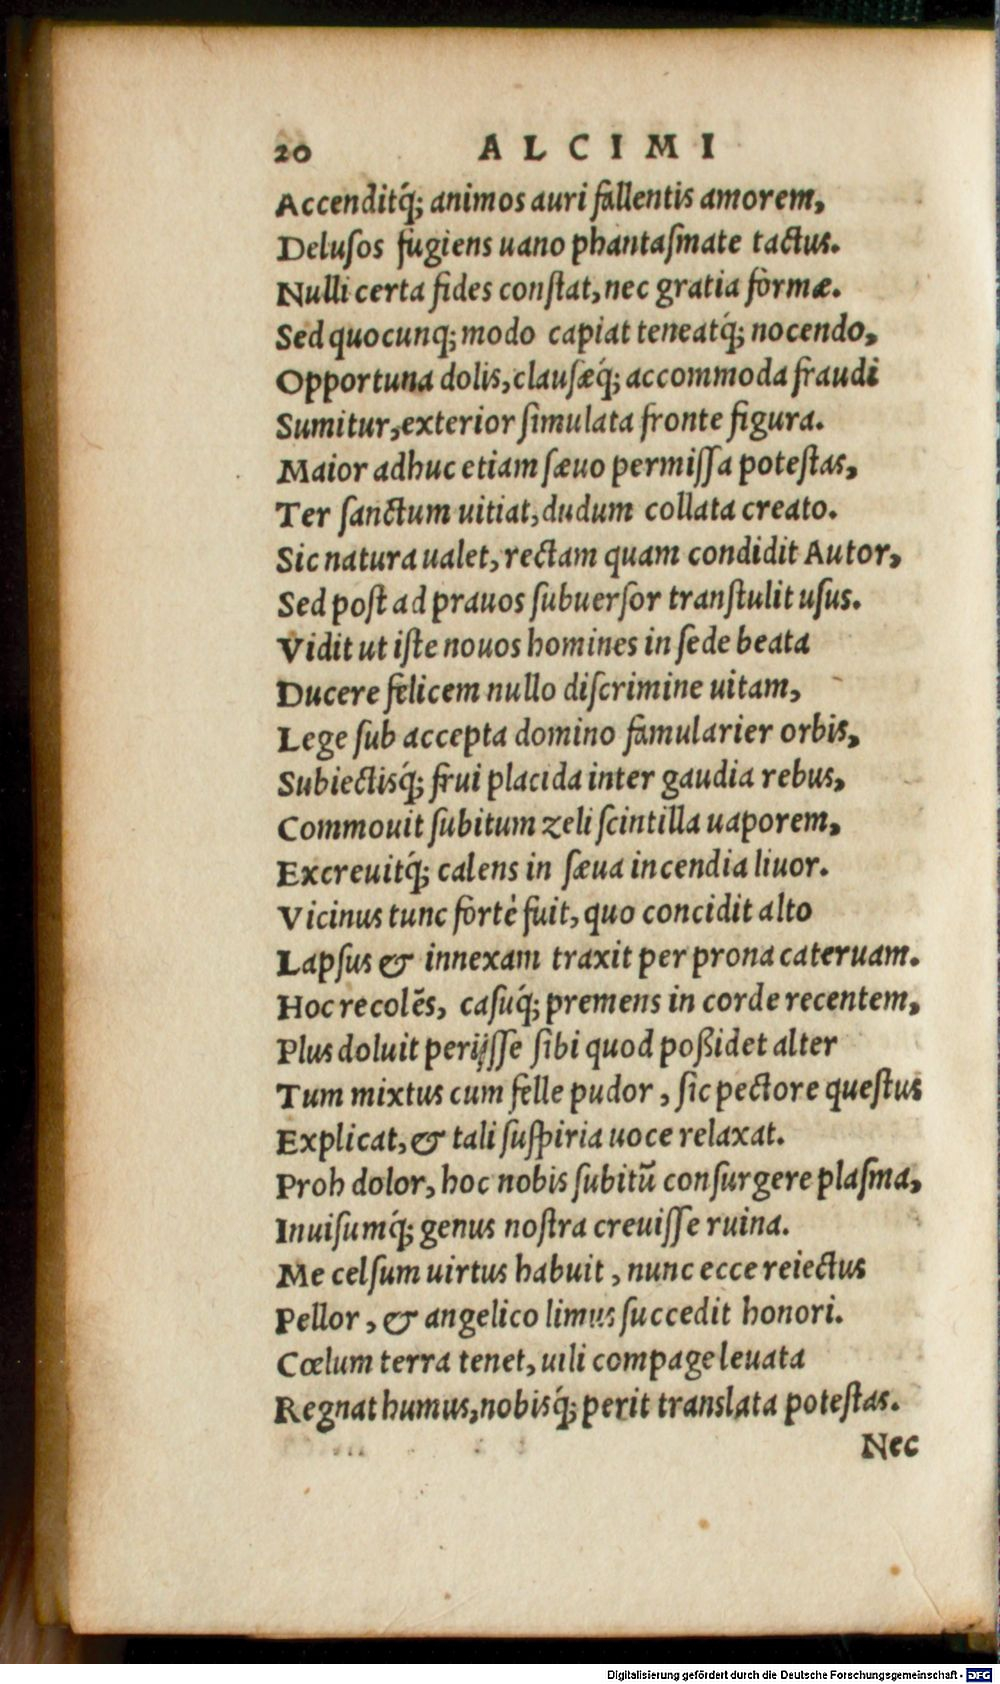 20 ALCIMI
Accenditq́; animos auri fallentis amorem,
Delusos fugiens uano phantasmate tactus.
Nulli certa fides constat, nec gratia formæ.
Sed quocunq; modo capiat teneatq́; nocendo,
Opportuna dolis, clausæq́; accommoda fraudi
Sumitur, exterior simulata fronte figura.
Maior adhuc etiam sæuo permissa potestas,
Ter sanctum uitiat, dudum collata creato.
Sic natura ualet, rectam quam condidit Autor,
Sed post ad prauos subuersor transtulit usus.
Vidit ut iste nouos homines in sede beata
Ducere felicem nullo discrimine uitam,
Lege sub accepta domino famularier orbis,
Subiectisq́; frui placida inter gaudia rebus,
Commouit subitum zeli scintilla uaporem,
Excreuitq́; calens in sæua incendia liuor.
Vicinus tunc fortè fuit, quo concidit alto
Lapsus & innexam traxit per prona cateruam.
Hoc recolēs, casuq́; premens in corde recentem,
Plus doluit perijsse sibi quod poßidet alter
Tum mixtus cum felle pudor, sic pectore questus
Explicat, & tali suspiria uoce relaxat.
Proh dolor, hoc nobis subitū consurgere plasma,
Inuisumq́; genus nostra creuisse ruina.
Me celsum uirtus habuit, nunc ecce reiectus
Pellor, & angelico limus succedit honori.
Cœlum terra tenet, uili compage leuata
Regnat humus, nobisq́; perit translata potestas.
Nec
Digitalisierung gefördert durch die Deutsche Forschungsgemeinschaft - DFG